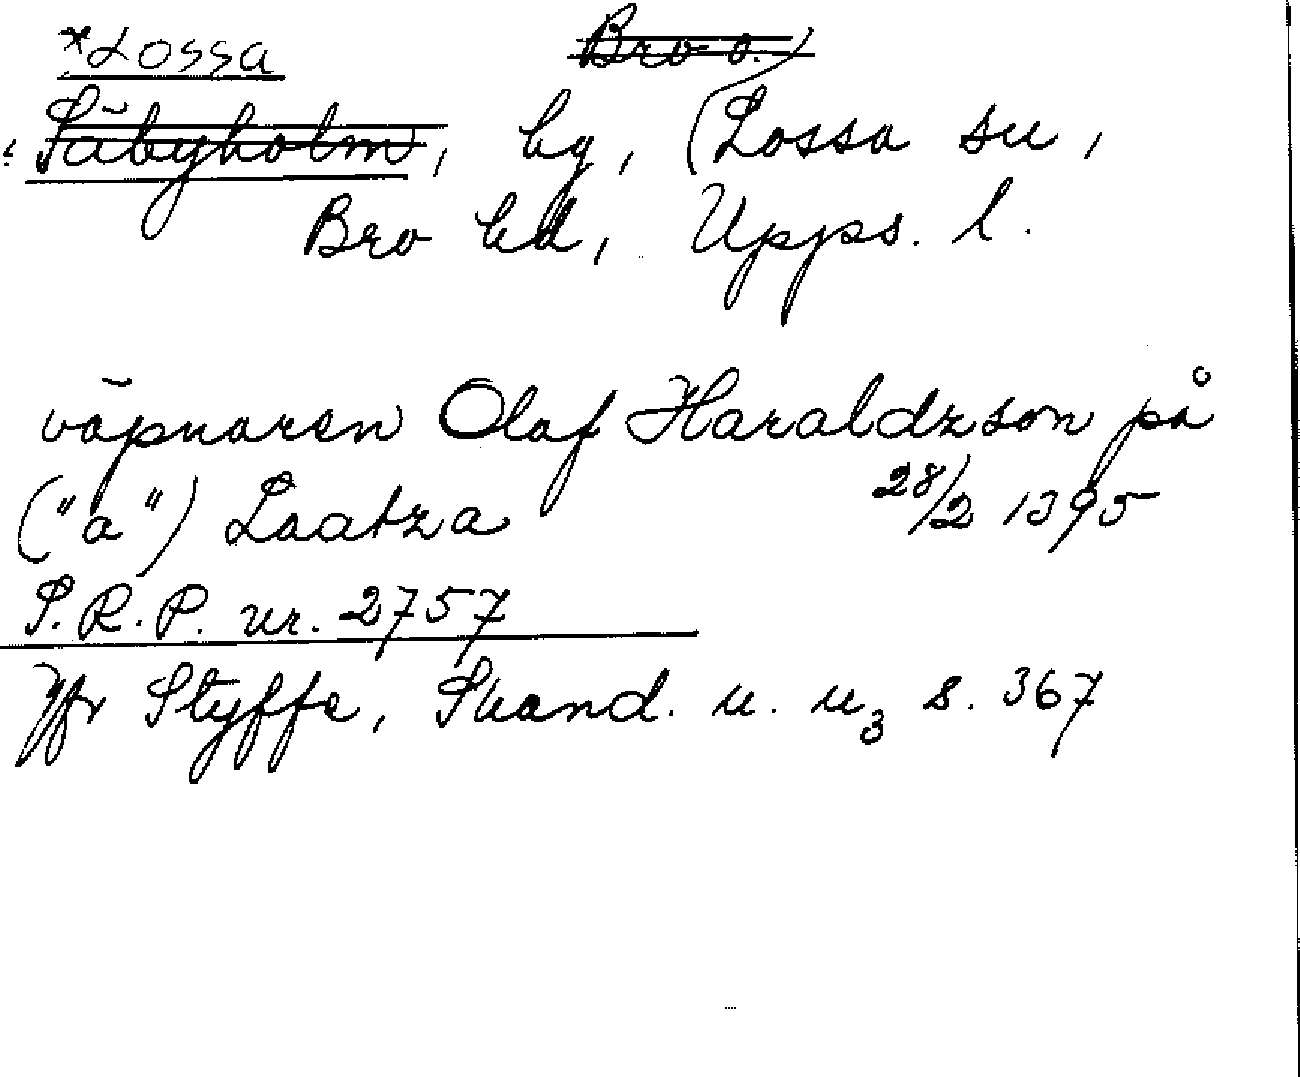 *Lossa Bro o.
Säbyholm, by, (Lossa sn,
Bro hd, Upps. l.
väpnaren Olaf Haraldzson på
("a") Laatza 28/2 1395
S.R.P. nr. 2757
Jfr Styffe, Skand. u. u3 s. 367